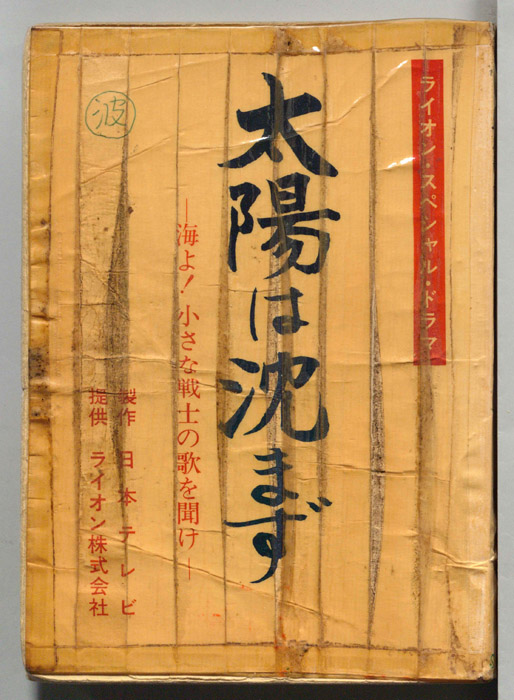 ライオン・スペシャル・ドラマ
太陽は沈まず
―海よ!小さな戦士の歌を聞け―
製作 日本テレビ
提供 ライオン株式会社
波